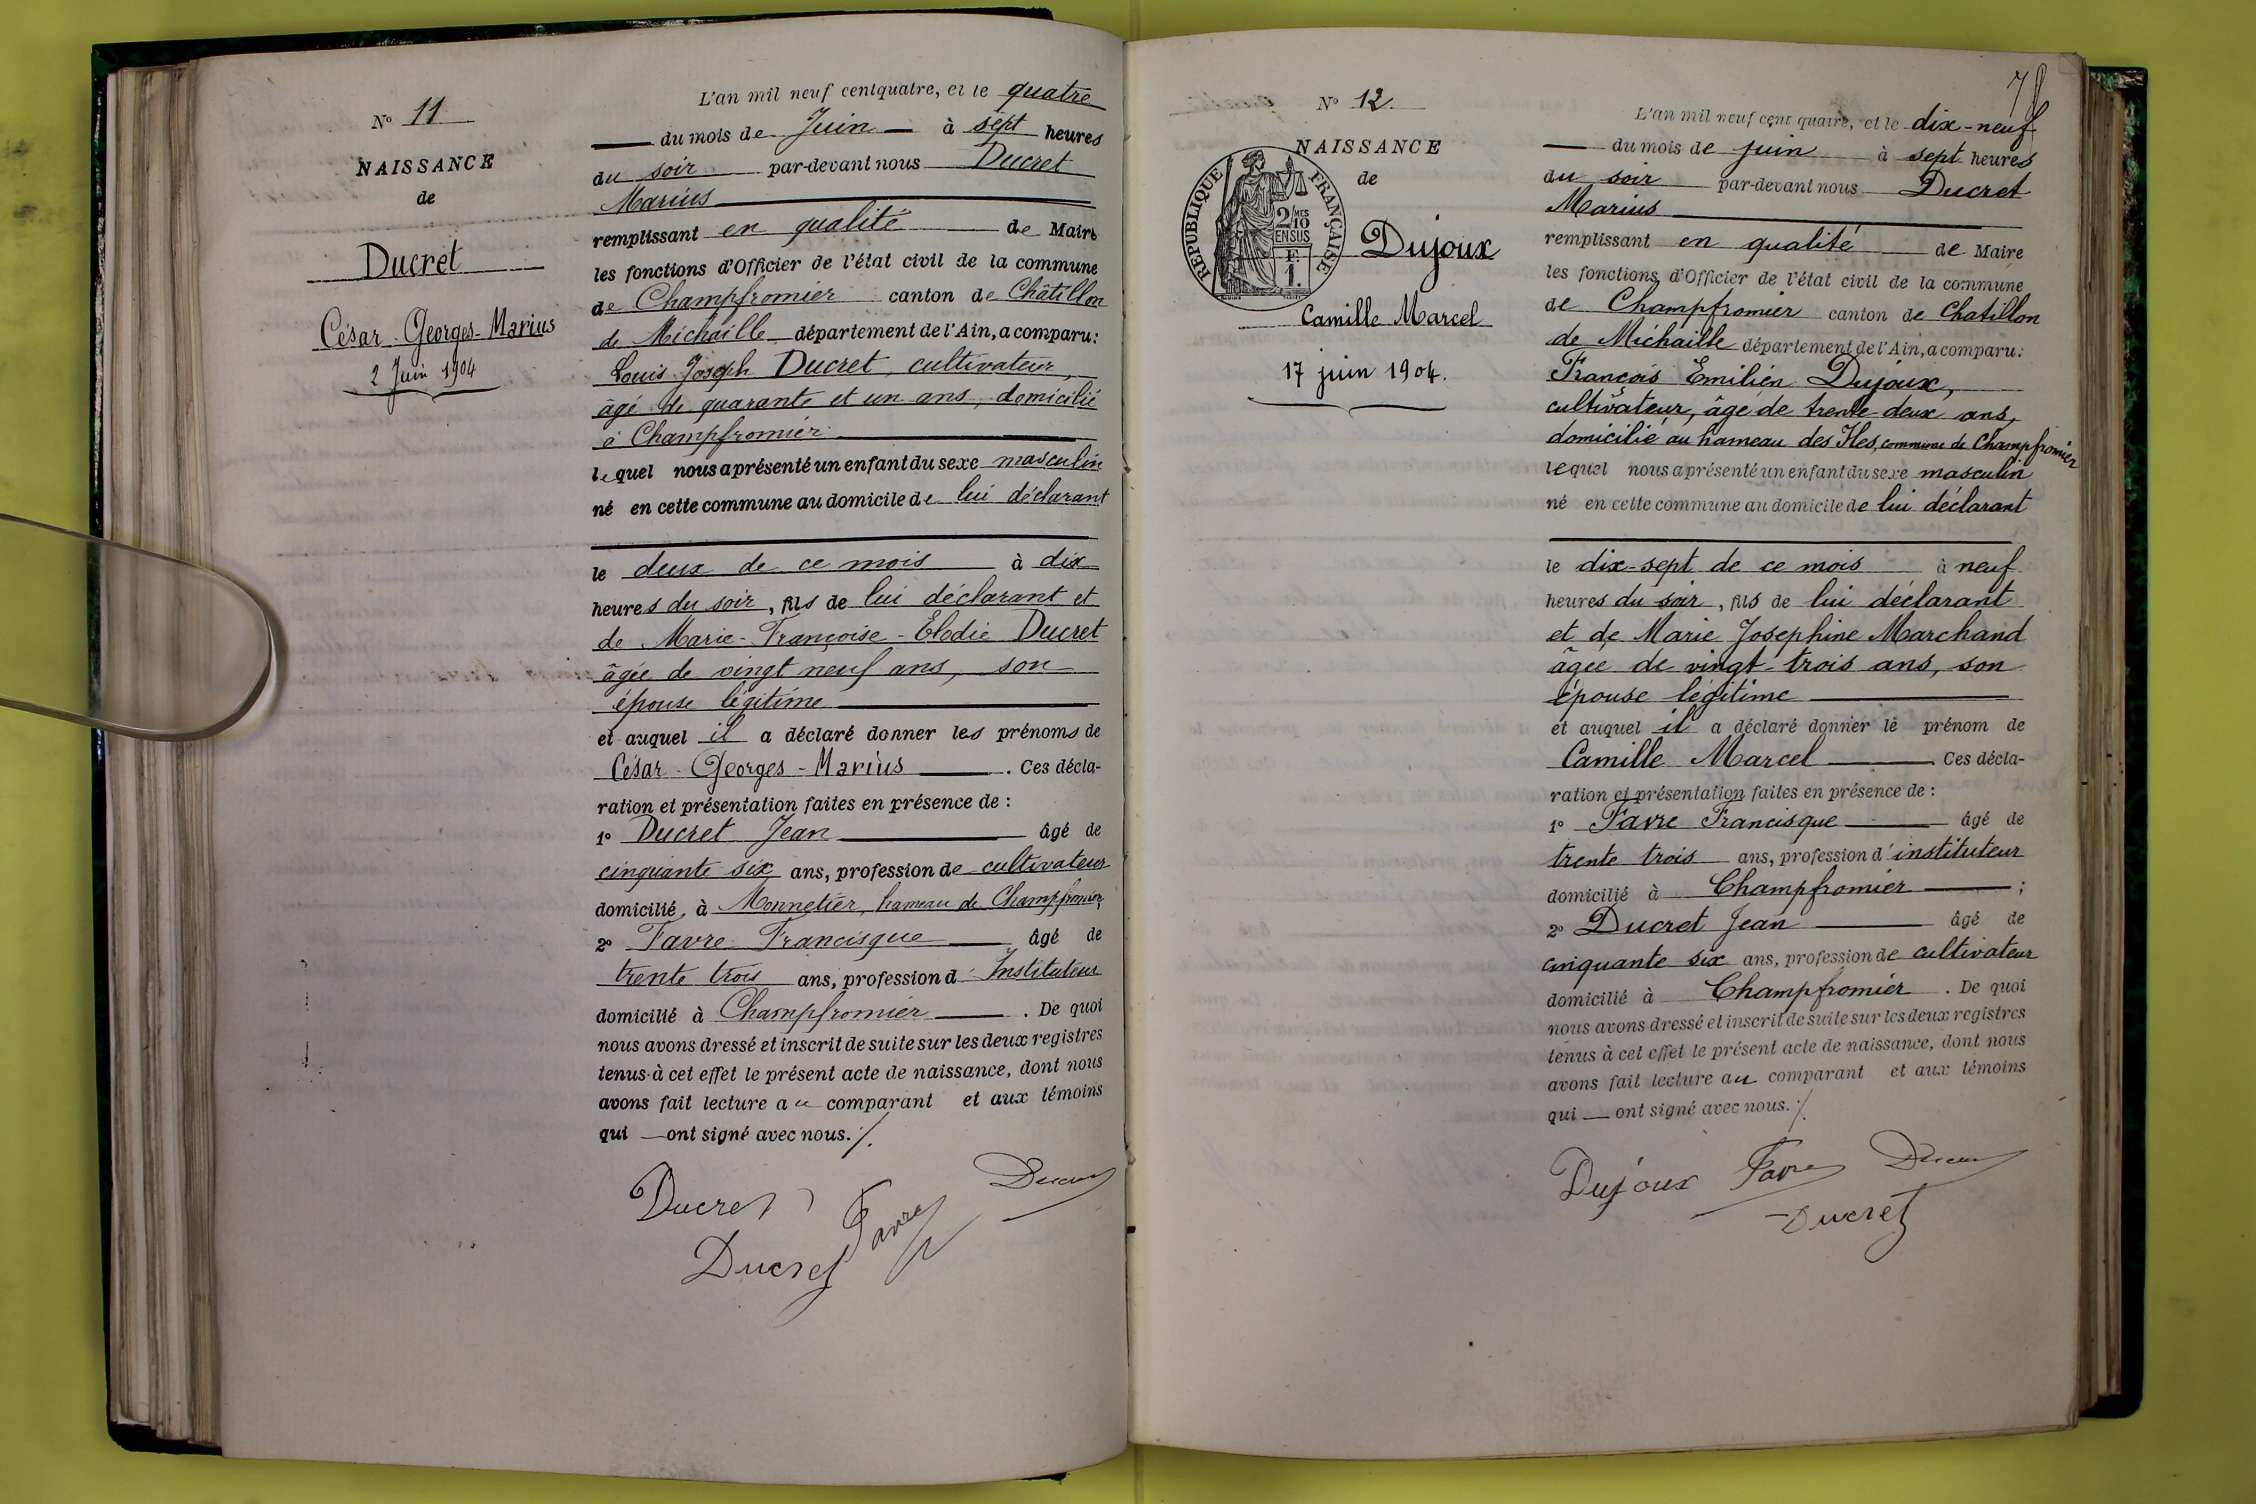 N° 11
NAISSANCE
de
Ducret
César-Georges-Marius
2 Juin 1904
L'an mil neuf cent quatre, et le quatre
du mois de Juin à sept heures
du soir par-devant nous Ducret
Marius
remplissant en qualité de Maire
les fonctions d'Officier de l'état civil de la commune
de Champfromier canton de Châtillon
de Michaille département de l'Ain, a comparu:
Louis Joseph Ducret, cultivateur,
âgé de quarante et un ans, domicilié
à Champfromier
lequel nous a présenté un enfant du sexe masculin
né en cette commune au domicile de lui déclarant
le deux de ce mois à dix
heures du soir, fils de lui déclarant et
de Marie-Françoise-Elodie Ducret
âgée de vingt neuf ans, son
épouse légitime
et auquel il a déclaré donner les prénoms de
César-Georges-Marius. Ces décla-
ration et présentation faites en présence de :
1° Ducret Jean âgé de
cinquante six ans, profession de cultivateur
domicilié à Monnetier, hameau de Champfromier,
2° Favre Francisque âgé de
trente trois ans, profession d'Instituteur
domicilié à Champfromier. De quoi
nous avons dressé et inscrit de suite sur les deux registres
tenus à cet effet le présent acte de naissance, dont nous
avons fait lecture au comparant et aux témoins
qui ont signé avec nous. /.
Ducret Favre Ducret
Ducret
78
N° 12
NAISSANCE
de
RÉPUBLIQUE FRANÇAISE
2/10MES
EN SUS
F.
1.
Dujoux
Camille Marcel
17 juin 1904.
L'an mil neuf cent quatre, et le dix-neuf
du mois de juin à sept heures
du soir par-devant nous Ducret
Marius
remplissant en qualité de Maire
les fonctions d'Officier de l'état civil de la commune
de Champfromier canton de Chatillon
de Michaille département de l'Ain, a comparu:
François Emilien Dujoux,
cultivateur, âgé de trente-deux ans,
domicilié au hameau des Iles, commune de Champfromier
lequel nous a présenté un enfant du sexe masculin
né en cette commune au domicile de lui déclarant
le dix-sept de ce mois à neuf
heures du soir, fils de lui déclarant
et de Marie Josephine Marchand
âgée de vingt-trois ans, son
épouse légitime
et auquel il a déclaré donner le prénom de
Camille Marcel. Ces décla-
ration et présentation faites en présence de :
1° Favre Francisque âgé de
trente trois ans, profession d'instituteur
domicilié à Champfromier ;
2° Ducret Jean âgé de
cinquante six ans, profession de cultivateur
domicilié à Champfromier. De quoi
nous avons dressé et inscrit de suite sur les deux registres
tenus à cet effet le présent acte de naissance, dont nous
avons fait lecture au comparant et aux témoins
qui ont signé avec nous. /.
Dujoux Favre Ducret
Ducret